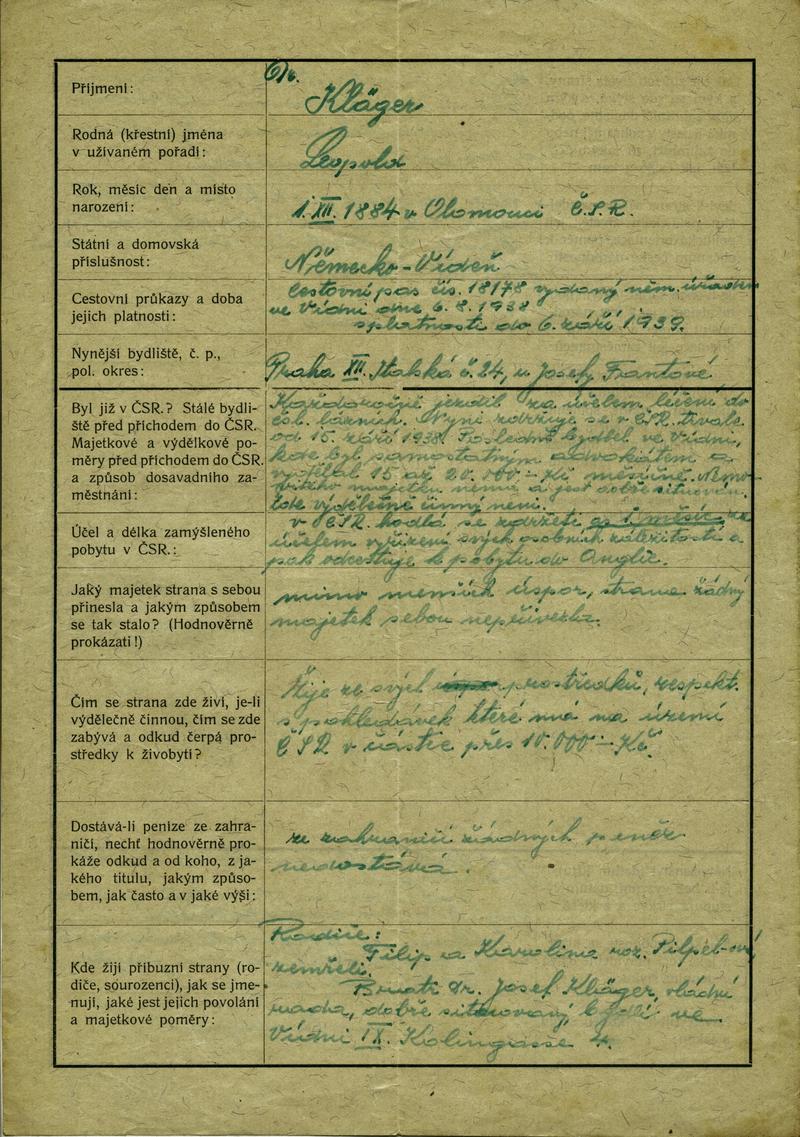 Příjmení:
Dr.
Kläger
Rodná (křestní) jména
v užívaném pořadí:
Leopold
Rok, měsíc den a místo
narození:
1.XII. 1884 v Olomouci Č.S.R.
Státní a domovská
příslušnost:
Německo-Vídeň
Cestovní průkazy a doba
jejich platnosti:
Cestovní pas čís. 18178 vydaný něm. úřadem
ve Vídni dne 6. 8. 1938
s platností do 6. září 1939.
Nynější bydliště, č. p.,
pol. okres:
Praha XII. č. 24, u Josefy Frantové
Byl již v ČSR.? Stálé bydli-
ště před příchodem do ČSR.
Majetkové a výdělkové po-
měry před příchodem do ČSR.
a způsob dosavadního za-
městnání:
Každoročně jezdil za účelem léčení do
čsl. lázních. Nyní zdržuje se v ČSR. trvale
od 15. září 1938. Posledně bydlel ve Vídni,
kde byl samostatným advokátem a
vydělal 15 až 20.000 Kč měsíčně. Nemo-
vitého majetku nemá a jest dobře situován.
Zde výdělečně činný není.
Účel a délka zamýšleného
pobytu v ČSR.:
v ČSR. hodlá se zdržeti za
účelem vyřízení svých osobních záležitostí a
pak odcestuje k pobytu do Anglie.
Jaký majetek strana s sebou
přinesla a jakým způsobem
se tak stalo? (Hodnověrně
prokázati!)
mimo menších úspor, strana žádný
majetek sebou nepřivezla.
Čím se strana zde živí, je-li
výdělečně činnou, čím se zde
zabývá a odkud čerpá pro-
středky k živobytí?
Žije ze svých prostředků, respekt.
z pohledávek které má na území
ČSR v částce přes 10.000 Kč
Dostává-li peníze ze zahra-
ničí, nechť hodnověrně pro-
káže odkud a od koho, z ja-
kého titulu, jakým způso-
bem, jak často a v jaké výši:
ze zahraničí žádných peněz
nedostává.
Kde žijí příbuzní strany (ro-
diče, sourozenci), jak se jme-
nují, jaké jest jejich povolání
a majetkové poměry:
Rodiče:
Filip a Karolina roz.
zemřeli.
Bratr Dr. Josef Kläger,
dobře situovaný, bydlí ve
Vídni IX. Kolingasse 4.